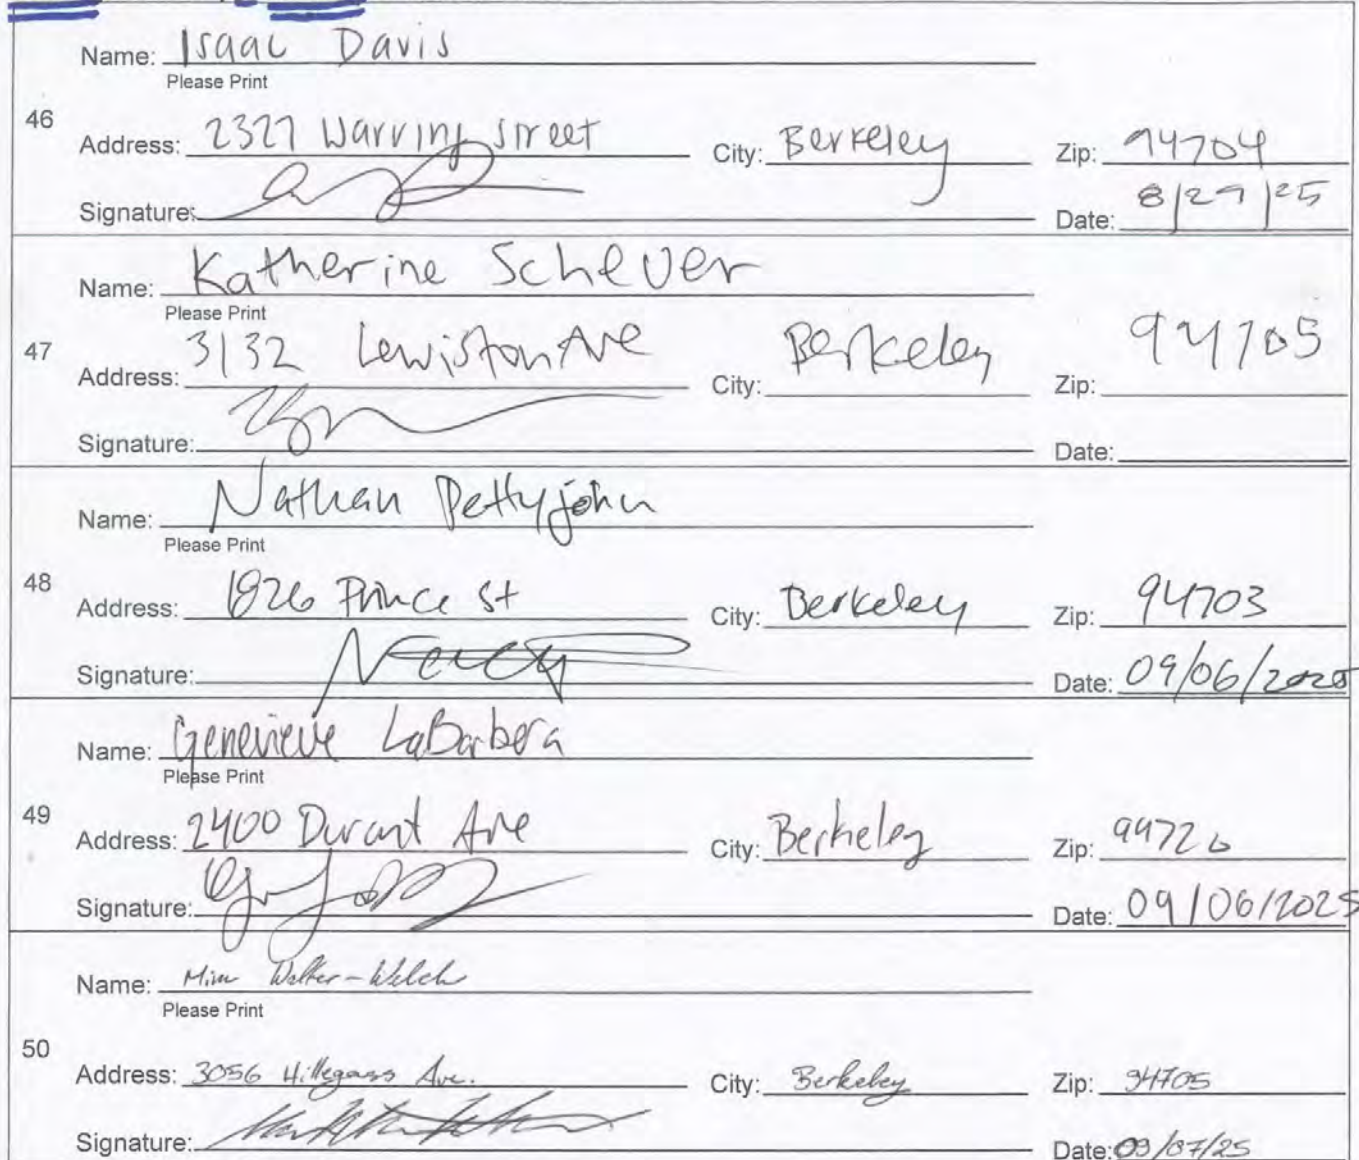 Name: Isaac Davis
Please Print
46
Address: 2327 Warring street City: Berkeley Zip: 94704
Signature: Date: 8/27/25
Name: Katherine Scheuer
Please Print
47
Address: 3132 Lewiston Ave City: Berkeley Zip: 94705
Signature: Date:
Name: Nathan Pettyjohn
Please Print
48
Address: 1826 Prince St City: Berkeley Zip: 94703
Signature: Date: 09/06/2025
Name: Genevieve LaBarbera
Please Print
49
Address: 2400 Durant Ave City: Berkeley Zip: 94720
Signature: Date: 09/06/2025
Name: Walter-Welch
Please Print
50
Address: 3056 Hillegass Ave. City: Berkeley Zip: 94705
Signature: Date: 09/07/25